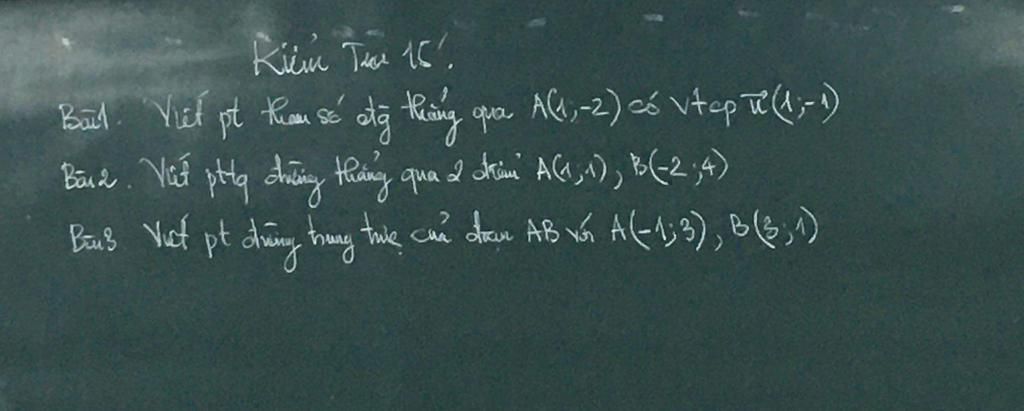 Kiểm Tra 15'.
Bài 1. Viết pt tham số đtg thẳng qua A(1;-2) có vtcp u⃗(1;-1)
Bài 2. Viết pttq đường thẳng qua 2 điểm A(1;1), B(-2;4)
Bài 3 Viết pt đường trung trực của đoạn AB với A(-1;3), B(3;1)